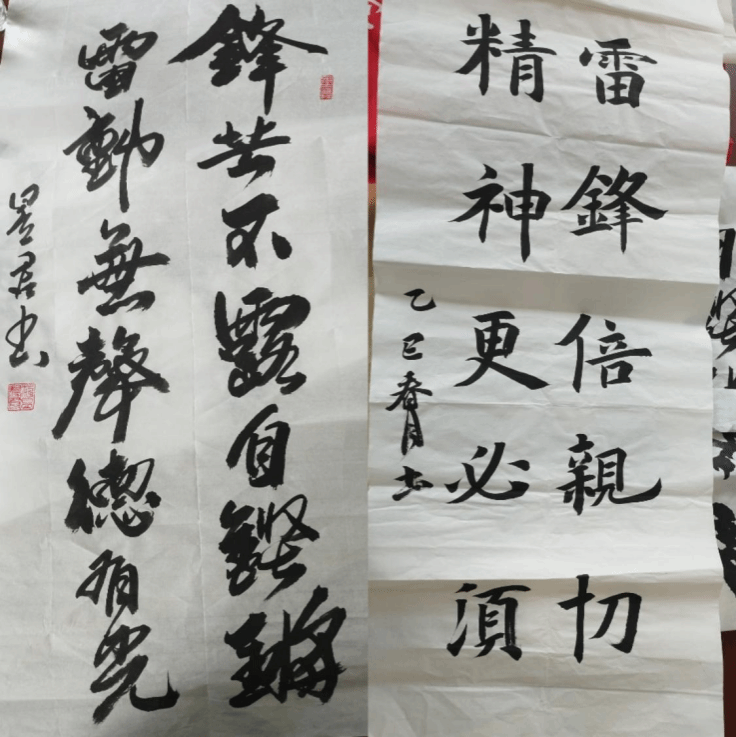 鋒芒不露自鏗鏘
雷動無聲德有光
君书
雷鋒倍親切
精神更必須
乙巳春月書